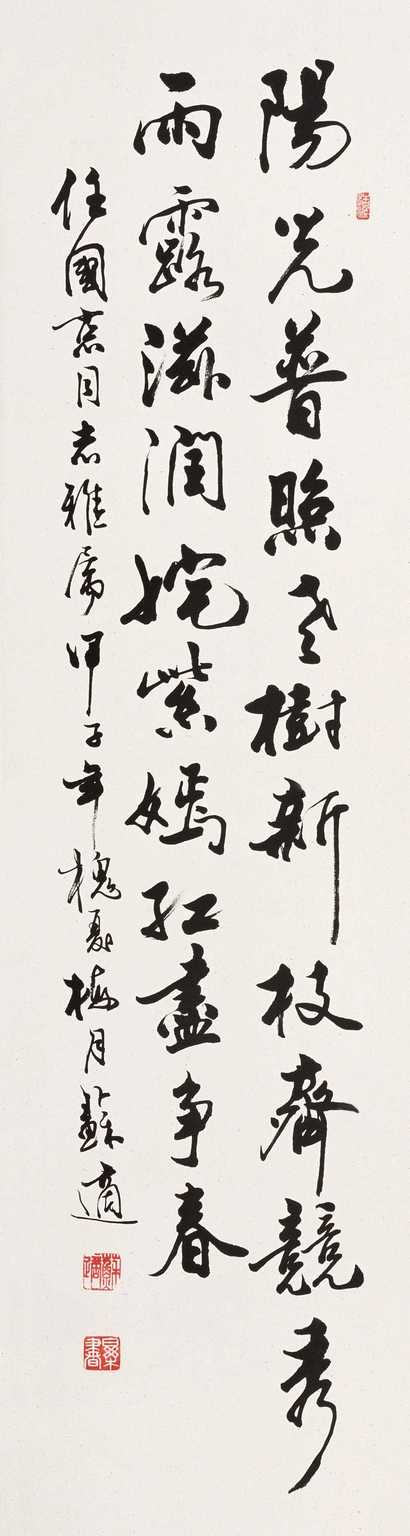 陽光普照老樹新枝齊競秀
雨露滋潤姹紫嫣紅盡爭春
任國志同志雅屬甲子年槐夏梅月蘇適
蘇適